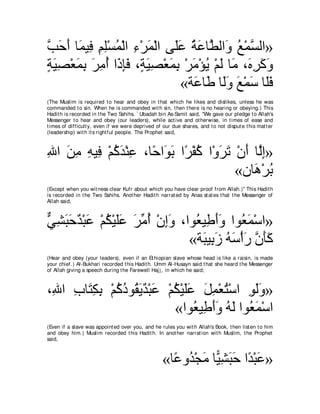 «السَّمْعُ وَالطَّاعَةُ عَلَى الْمَرْءِ الْمُسْلِمِ فِيمَا أَحَبَّ
وَكَرِهَ، مَا لَمْ يُؤْمَرْ بِمَعْصِيَةٍ، فَإِذَا أُمِرَ بِمَعْصِيَةٍ
فَلَا سَمْعَ وَلَا طَاعَةَ»
(The Muslim is required to hear and obey in that which he likes and dislikes, unless he was
commanded to sin. When he is commanded with sin, then there is no hearing or obeying.) This
Hadith is recorded in the Two Sahihs. `Ubadah bin As-Samit said, "We gave our pledge to Allah's
Messenger to hear and obey (our leaders), while active and otherwise, in times of ease and
times of difficulty, even if we were deprived of our due shares, and to not dispute this matter
(leadership) with its rightful people. The Prophet said,
«إِلَّا أَنْ تَرَوْا كُفْرًا بَوَاحًا، عِنْدَكُمْ فِيهِ مِنَ اللهِ
بُرْهَانٌ»
(Except when you witness clear Kufr about which you have clear proof from Allah.)'' This Hadith
is recorded in the Two Sahihs. Another Hadith narrated by Anas states that the Messenger of
Allah said,
«اسْمَعُوا وَأَطِيعُوا، وَإِنْ أُمِّرَ عَلَيْكُمْ عَبْدٌ حَبَشِيٌّ
كَأَنَّ رَأْسَهُ زَبِيبَةٌ»
(Hear and obey (your leaders), even if an Ethiopian slave whose head is like a raisin, is made
your chief.) Al-Bukhari recorded this Hadith. Umm Al-Husayn said that she heard the Messenger
of Allah giving a speech during the Farewell Hajj, in which he said;
«وَلَوِ اسْتُعْمِلَ عَلَيْكُمْ عَبْدٌ يَقُودُكُمْ بِكِتَابِ اللهِ،
اسْمَعُوا لَهُ وَأَطِيعُوا»
(Even if a slave was appointed over you, and he rules you with Allah's Book, then listen to him
and obey him.) Muslim recorded this Hadith. In another narration with Muslim, the Prophet
said,
«عَبْدًا حَبَشِيًّا مَجْدُوعًا»